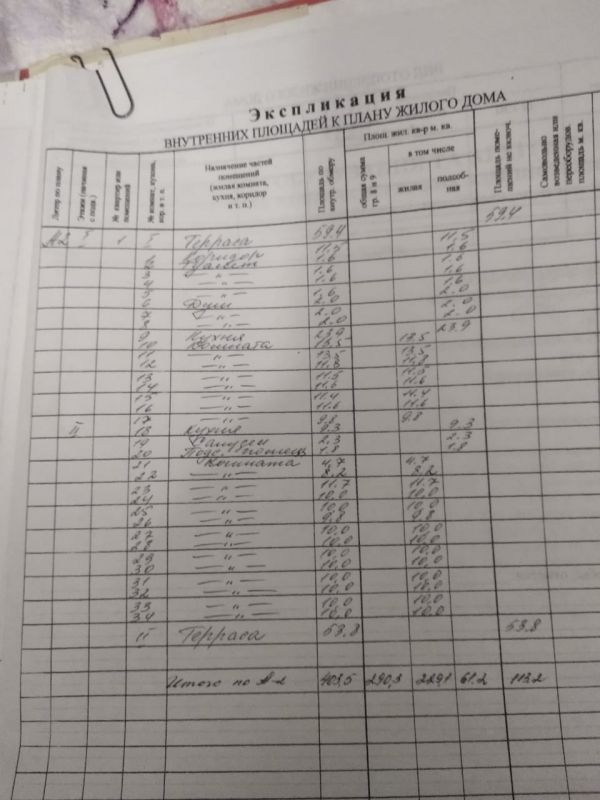 Экспликация
ВНУТРЕННИХ ПЛОЩАДЕЙ К ПЛАНУ ЖИЛОГО ДОМА
Литер по плану
Этажи (начиная с подв.)
№ квартир или помещений
№ комнат, кухни, кор. и т. п.
Назначение частей помещений (жилая комната, кухня, коридор и т. п.)
Площадь по внутр. обмеру
Площ. жил. кв-р м. кв.
общая сумма гр. 8 и 9
в том числе
жилая
подсобная
Площадь помещений не включ.
Самовольно возведенная или переоборудов. площадь м. кв.
А2 I 1 I Терраса 59.4 59.4
Коридор 11.5 11.5
Туалет 1.6 1.6
—"— 1.6 1.6
—"— 1.6 1.6
—"— 1.6 1.6
6 Душ 2.0 2.0
7 —"— 2.0 2.0
8 —"— 2.0 2.0
9 Кухня 23.9 23.9
10 Комната 13.5 13.5
11 —"— 13.5 13.5
12 —"—
13 —"— 11.5 11.5
14 —"— 11.6 11.6
15 —"— 11.4 11.4
16 —"— 11.6 11.6
17 —"— 9.8 9.8
II 18 Кухня 9.3 9.3
19 Санузел 2.3 2.3
20 Подс. помещ 1.8 1.8
21 Комната 4.7 4.7
22 —"— 8.2 8.2
23 —"— 11.7 11.7
24 —"— 10,0 10,0
25 —"— 10,0 10,0
26 —"— 9.8 9.8
27 —"— 10,0 10,0
28 —"— 10,0 10,0
29 —"— 10,0 10,0
30 —"— 10,0 10,0
31 —"— 10,0 10,0
32 —"— 10,0 10,0
33 —"— 10,0 10,0
34 —"— 10,0 10,0
II Терраса 53,8 53,8
Итого по А-2 403,5 290,3 229,1 61.2 113.2